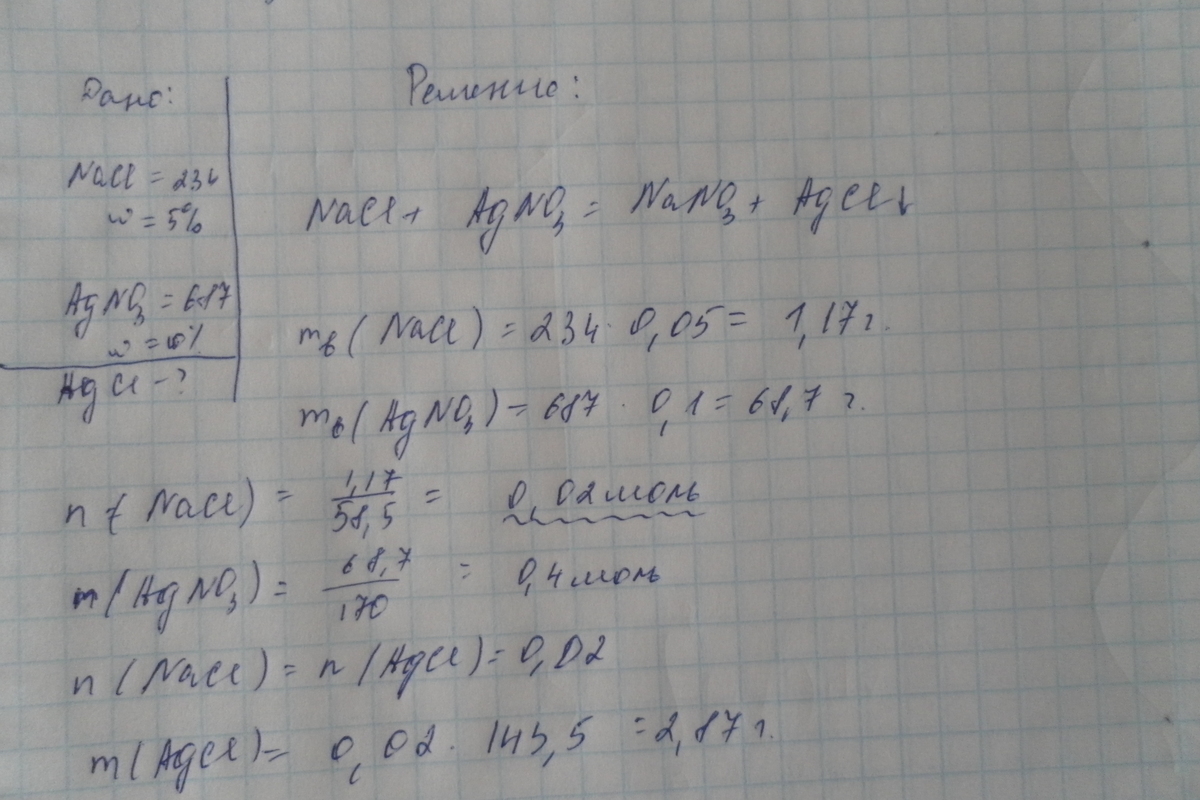 Дано:
NaCl = 234
w = 5%
AgNO3 = 687
w = 10%
AgCl - ?
Решение:
NaCl + AgNO3 = NaNO3 + AgCl↓
mв(NaCl) = 234 · 0,05 = 1,17 г.
mв(AgNO3) = 687 · 0,1 = 68,7 г.
n(NaCl) = 1,17/58,5 = 0,02 моль
n(AgNO3) = 68,7/170 = 0,4 моль
n(NaCl) = n(AgCl) = 0,02
m(AgCl) = 0,02 · 143,5 = 2,87 г.